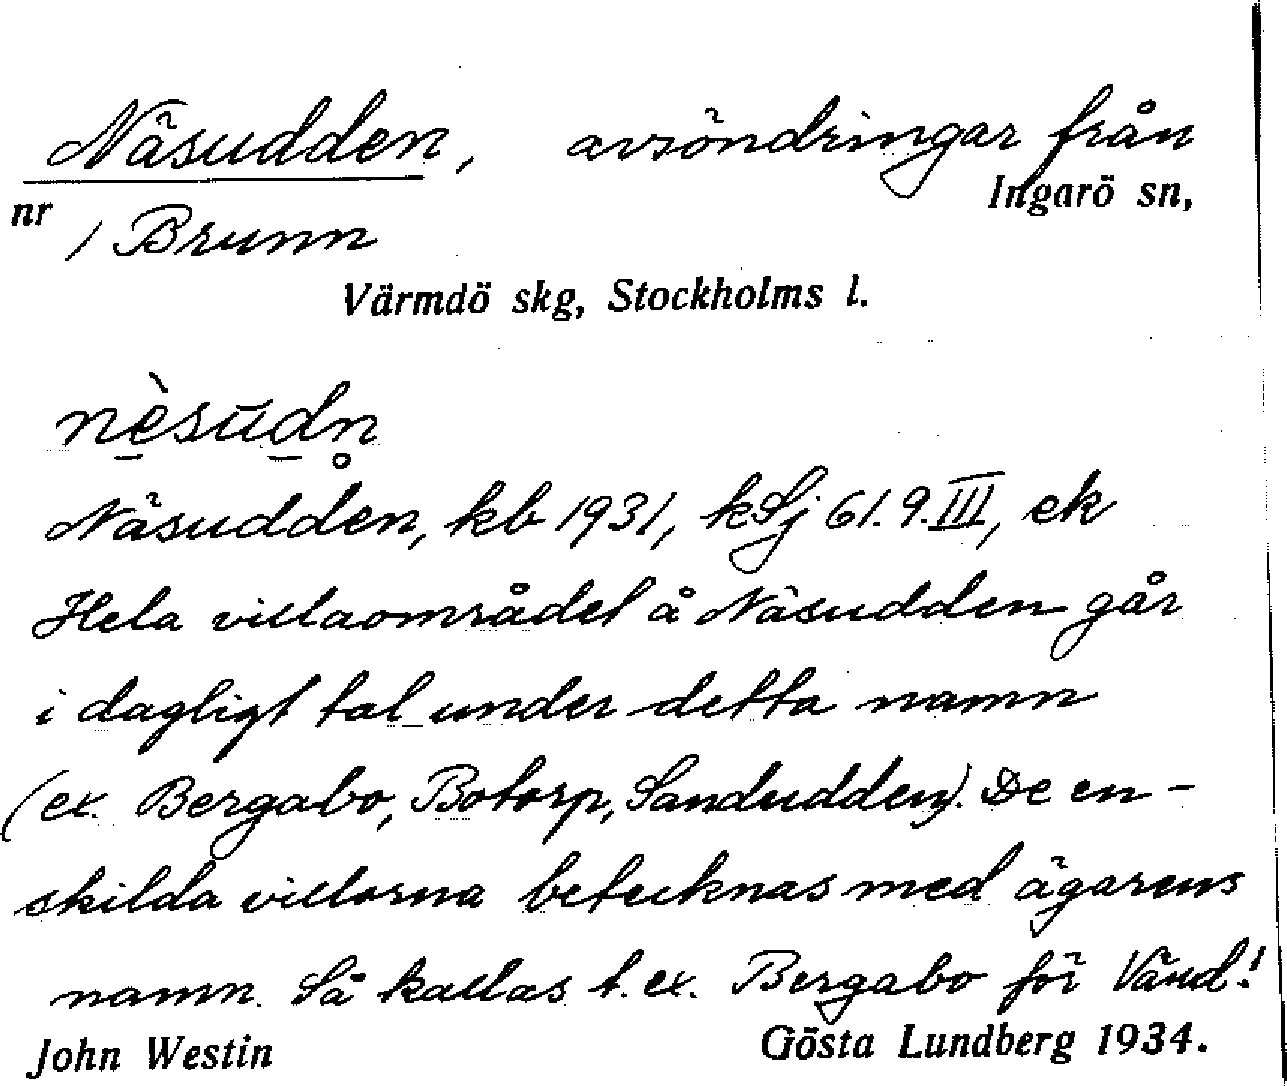 Näsudden, avsöndringar från
Ingarö sn,
nr / Brunn
Värmdö skg, Stockholms l.
nèsūdn̥
Näsudden, kb 1931, kSj 61.9.III, ek
Hela villaområdet å Näsudden går
i dagligt tal under detta namn
(ex. Bergabo, Botorp, Sandudden). De en-
skilda villorna betecknas med ägarens
namn. Så kallas t. ex. Bergabo för Vänd!
John Westin Gösta Lundberg 1934.